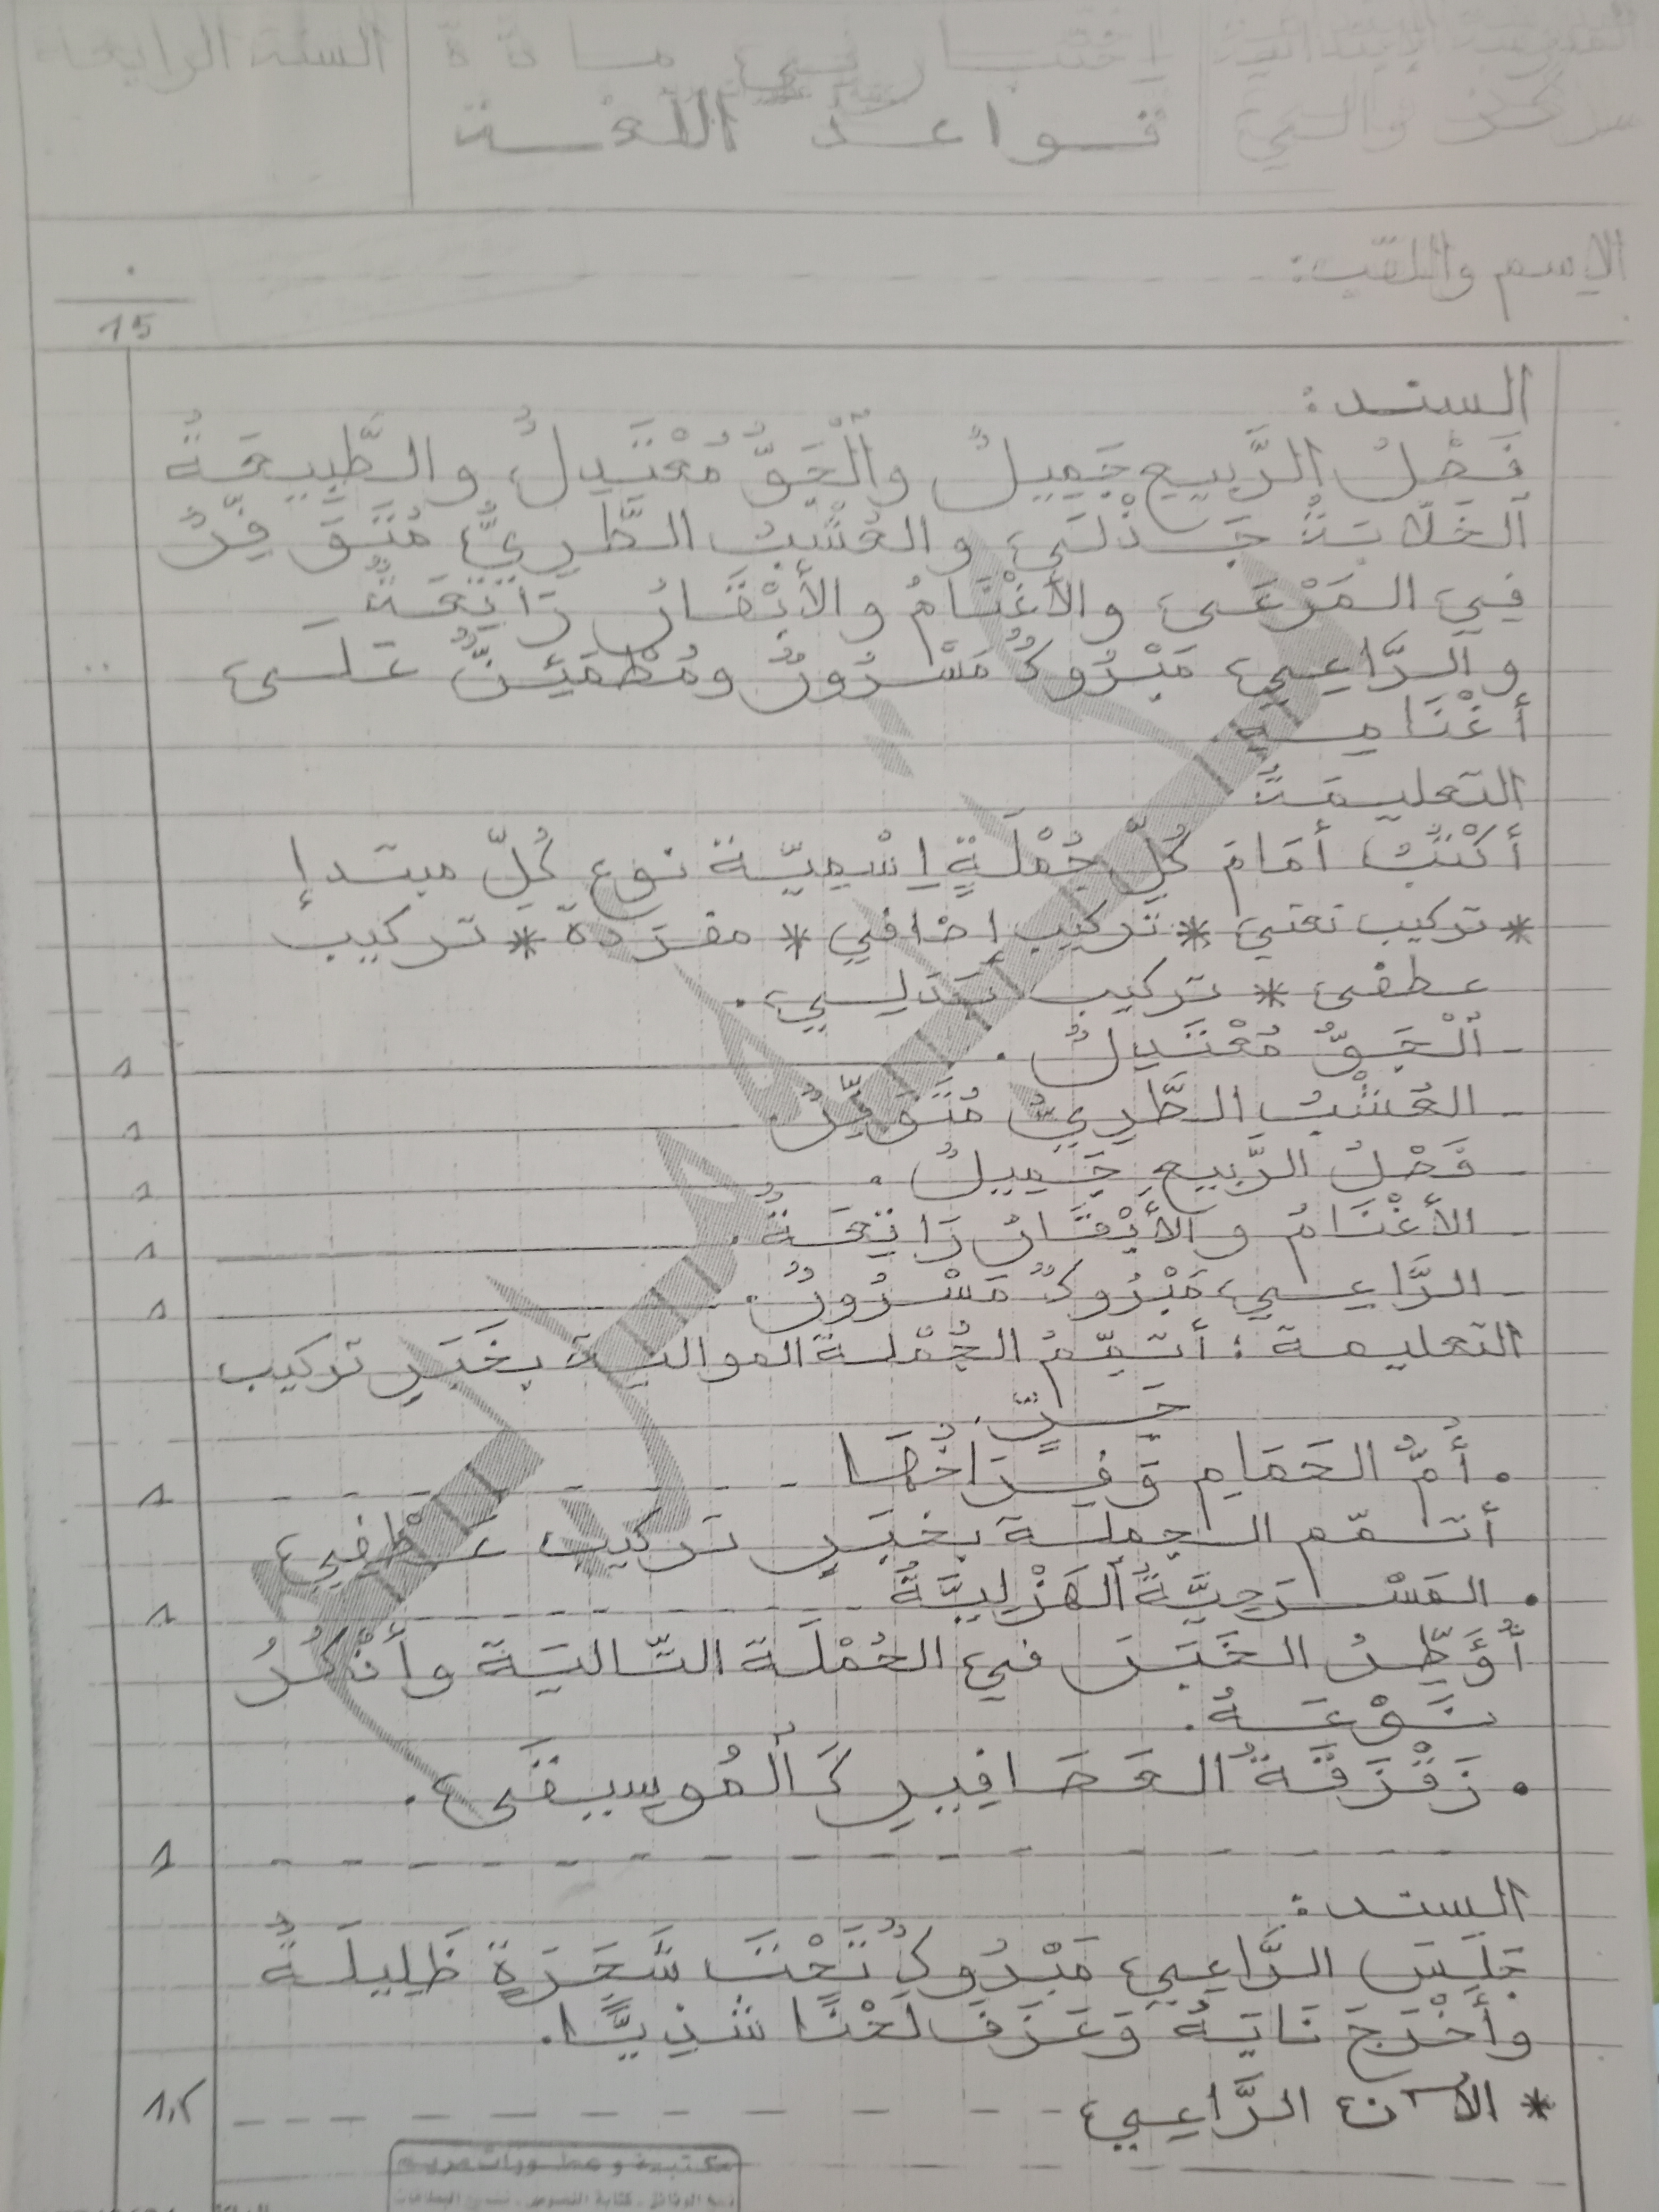 المدرسة الابتدائية
اختبار في مادة
السنة الرابعة
قواعد اللغة
الاسم واللقب:
15
السند:
فَصْلُ الرَّبِيعِ جَمِيلٌ والْجَوُّ مُعْتَدِلٌ والطَّبِيعَةُ
الخَلَّابَةُ جَذْلَى والعُشْبُ الطَّرِيُّ مُتَوَفِّرٌ
فِي المَرْعَى والأَغْنَامُ والأَبْقَارُ رَاتِعَةٌ
والرَّاعِي مَبْرُوكٌ مَسْرُورٌ ومُطْمَئِنٌّ عَلَى
أَغْنَامِهِ.
التعليمة
أَكْتُبُ أَمَامَ كُلِّ جُمْلَةٍ اِسْمِيّة نوع كُلّ مبتدإ
* تركيب نعتي * تركيب إضافي * مفردة * تركيب
عطفي * تركيب بَدَلِي.
- اَلْجَوُّ مُعْتَدِلٌ. 1
- العُشْبُ الطَّرِيُّ مُتَوَفِّرٌ. 1
- فَصْلُ الرَّبِيعِ جَمِيلٌ. 1
- الأَغْنَامُ والأَبْقَارُ رَاتِعَةٌ. 1
- الرَّاعِي مَبْرُوكٌ مَسْرُورٌ. 1
التعليمة: أُتَمِّمُ الجُمْلة الموالية بِخَبَرٍ تركيب
جَرٍّ.
• أُمُّ الحَمَامِ وَفِرَاخُهَا 1
أتمّم الجملة بخَبَرٍ تَركيب عَطْفِي
• المَسْرَحِيَّةُ الهَزْلِيَّةُ 1
أُؤَطِّرُ الخَبَرَ في الجُمْلَة التّالِيَة وأَذْكُرُ
نَوْعَهُ.
• زَقْزَقَةُ العَصَافِيرِ كَالْمُوسِيقَى.
1
السند:
جَلَسَ الرَّاعِي مَبْرُوكٌ تَحْتَ شَجَرَةٍ ظَلِيلَةٍ
وأَخْرَجَ نَايَهُ وَعَزَفَ لَحْنًا شَذِيًّا.
* الآن الرَّاعِي
مكتبة